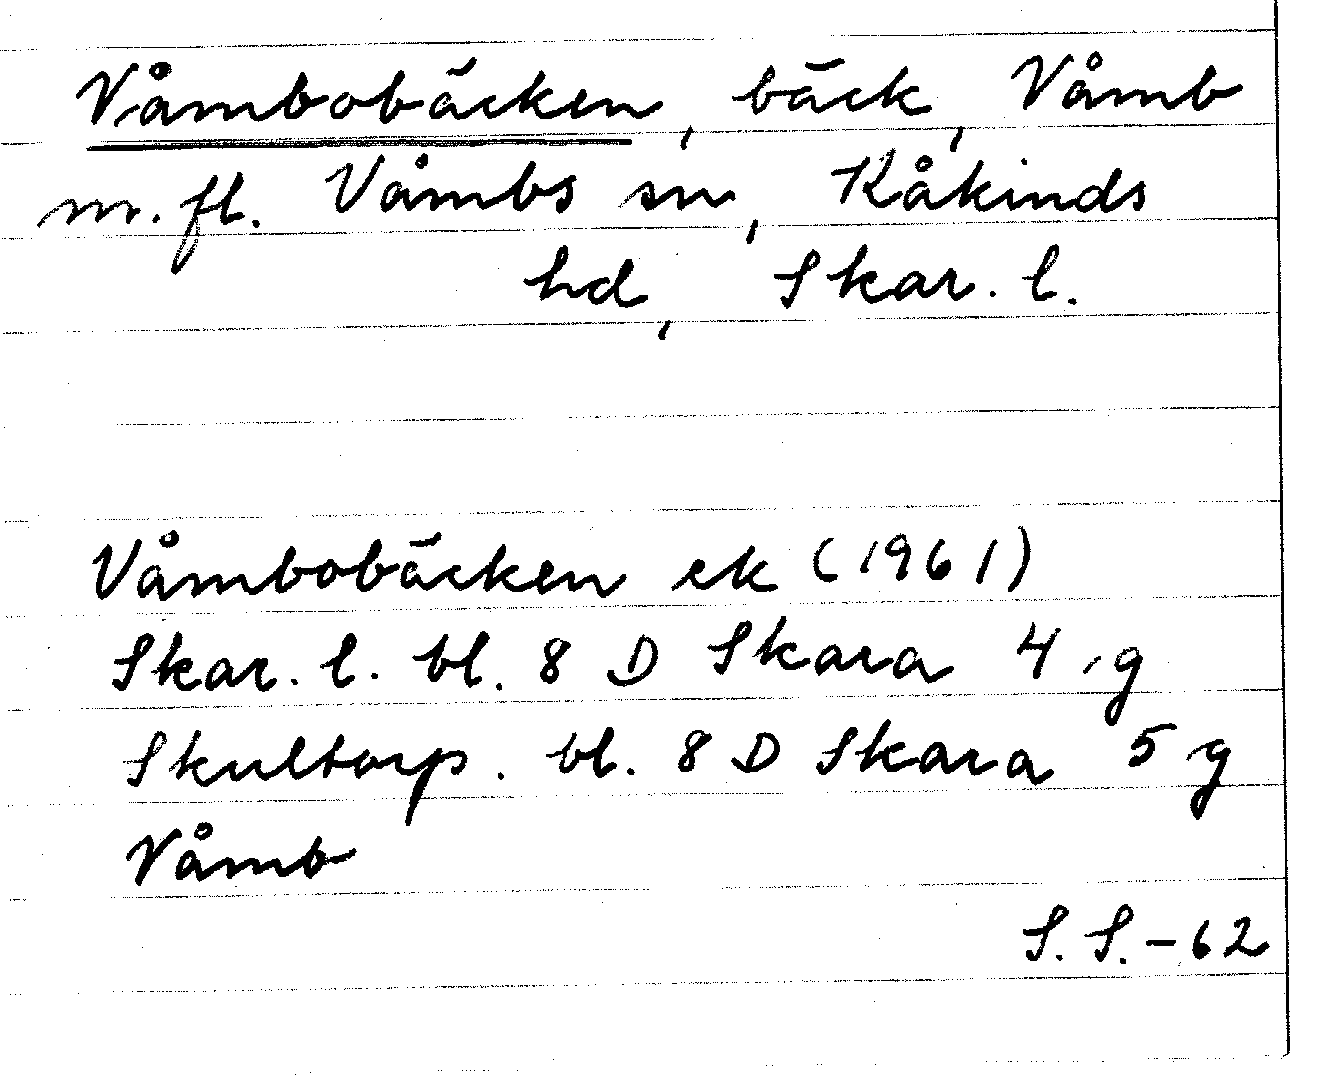 Våmbobäcken, bäck, Våmb
m. fl. Våmbs sn, Kåkinds
hd, Skar. l.
Våmbobäcken ek (1961)
Skar. l. bl. 8 D Skara 4 g
Skultorp. bl. 8 D Skara 5 g
Våmb
S. S. - 62